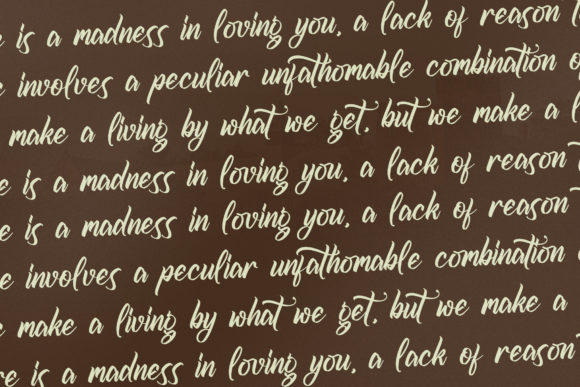 is a madness in loving you, a lack of reason
involves a peculiar unfathomable combination
make a living by what we get, but we make a
is a madness in loving you, a lack of reason
is a madness in loving you, a lack of reason
involves a peculiar unfathomable combination
make a living by what we get, but we make a
is a madness in loving you, a lack of reason